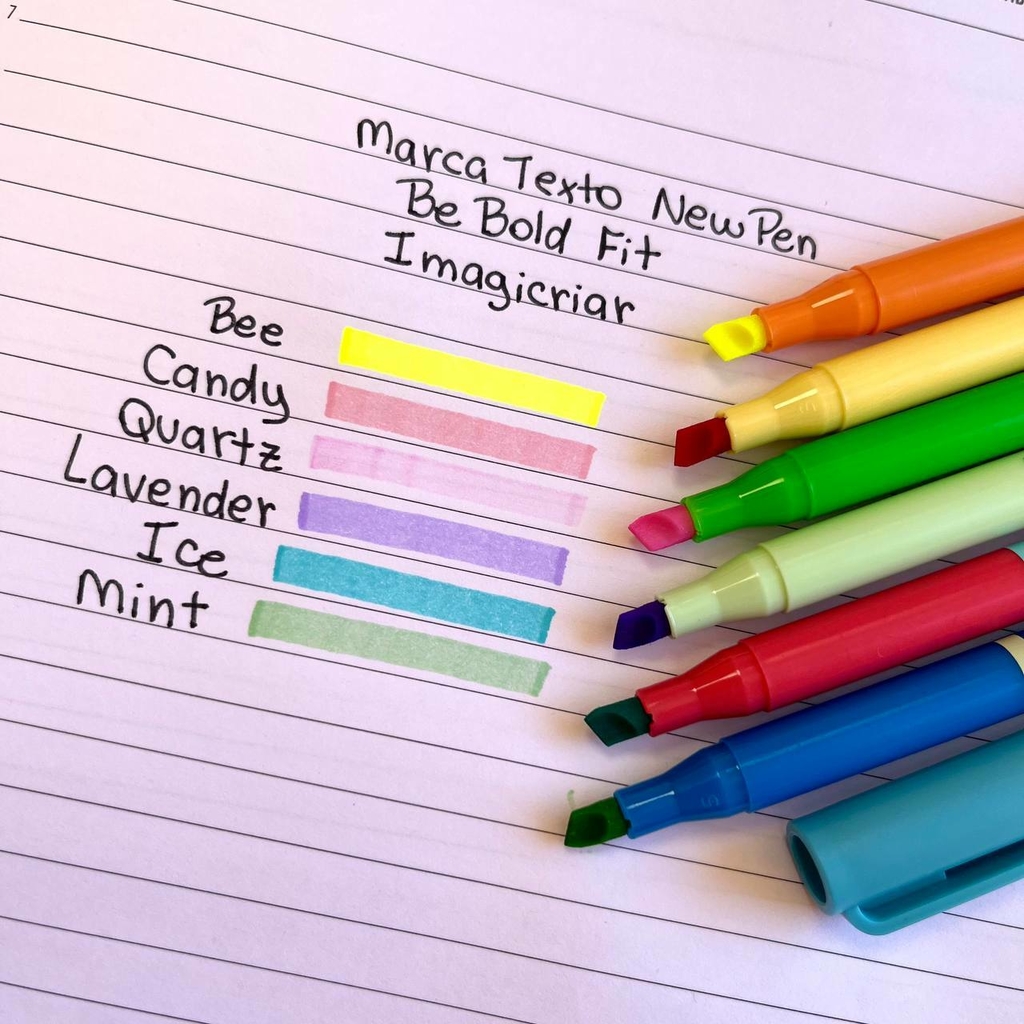 7
Marca Texto NewPen
Be Bold Fit
Imagicriar
Bee
Candy
Quartz
Lavender
Ice
Mint